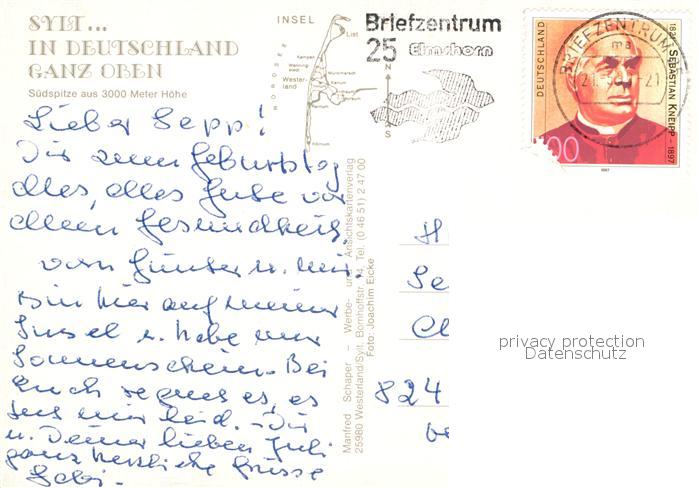 SYLT...
IN DEUTSCHLAND
GANZ OBEN
Südspitze aus 3000 Meter Höhe
INSEL
List
Kampen
Westerland
Hörnum
NORDSEE
Briefzentrum
25 Elmshorn
N
S
BRIEFZENTRUM
DEUTSCHLAND
1821 SEBASTIAN KNEIPP - 1897
100
1997
Lieber Sepp!
Dir zum Geburtstag
alles, alles Gute vor
allem Gesundheit
von Günter u. mir.
Bin hier auf meiner
Insel u. habe nur
Sonnenschein. Bei
Euch regnet es, es
tut mir leid. - Dir
u. Deiner lieben Juli
ganz herzliche Grüsse
Gabi.
Manfred Schaper – Werbe- und Ansichtskartenverlag
25980 Westerland/Sylt, Bomhoffstr. 14, Tel. (0 46 51) 2 47 00
Foto: Joachim Eicke
H
Se
Cl
824
privacy protection
Datenschutz